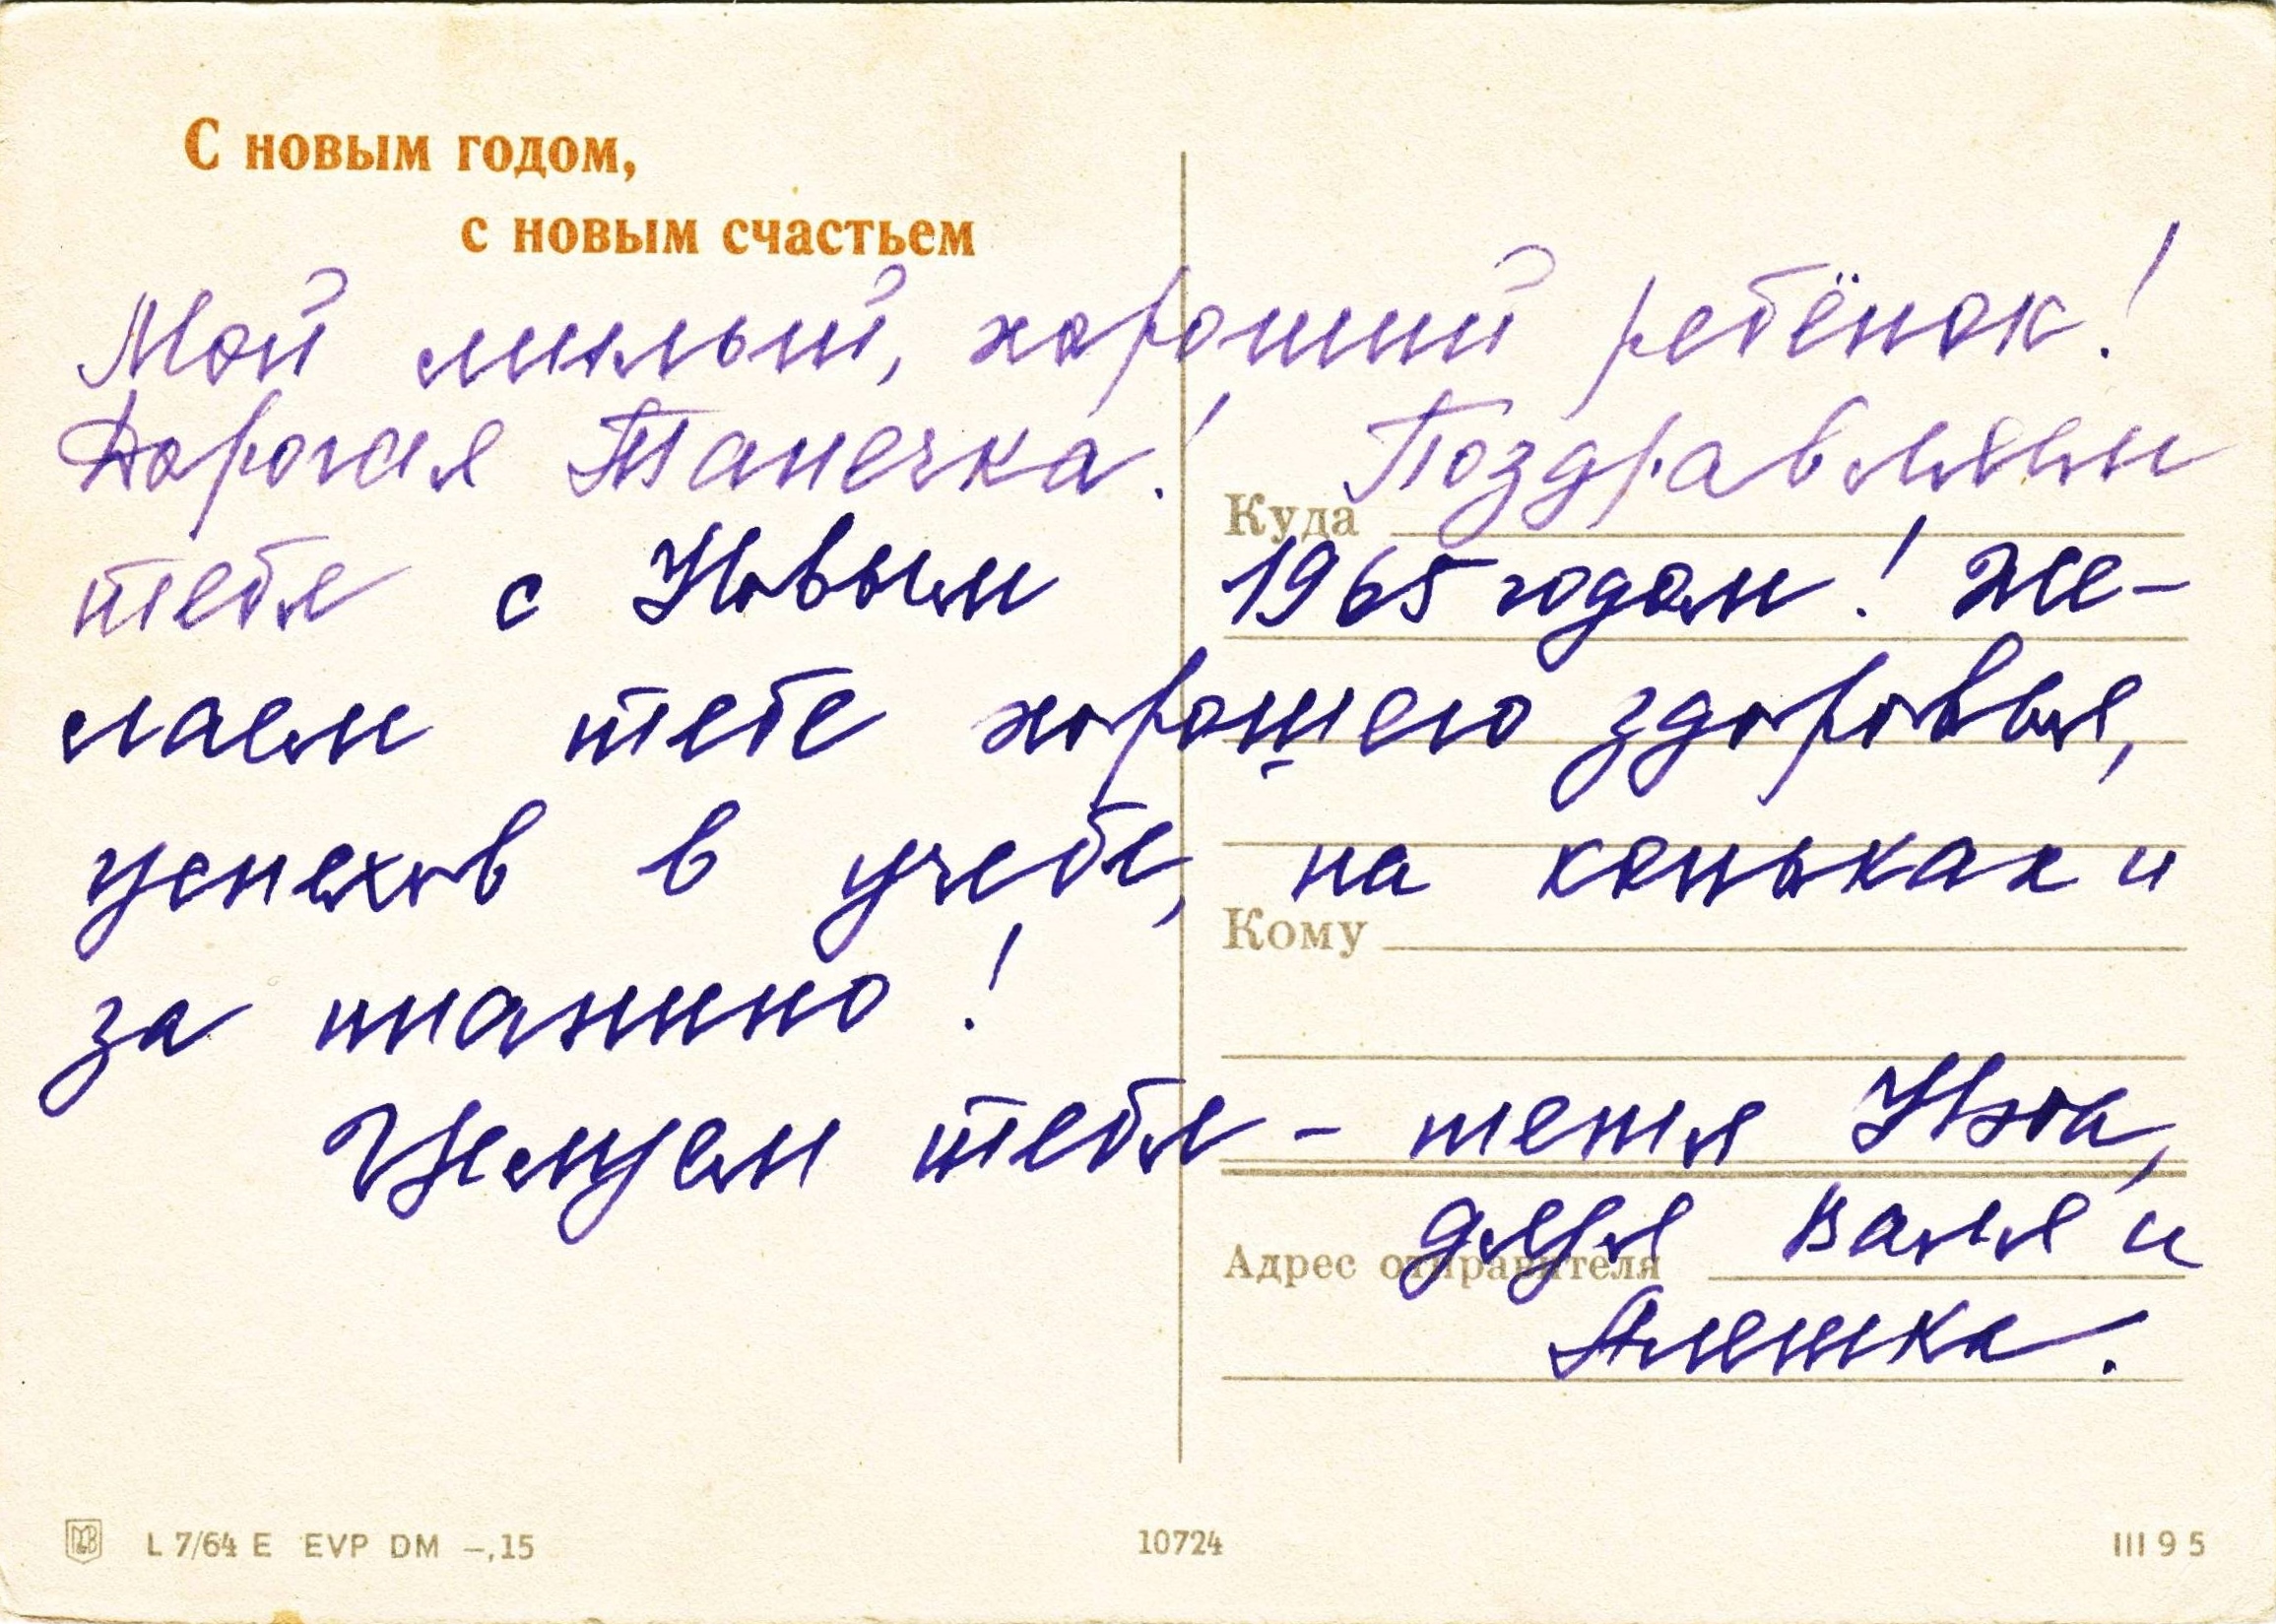 С новым годом,
с новым счастьем
Мой милый, хороший ребёнок!
Дорогая Танечка! Поздравляем
Куда
тебя с Новым 1965 годом! Же-
лаем тебе хорошего здоровья,
успехов в учебе, на коньках и
Кому
за пианино!
Целуем тебя - тетя Ина,
дядя Валя и
Адрес отправителя
Алешка.
L 7/64 E EVP DM –,15
10724
III 9 5